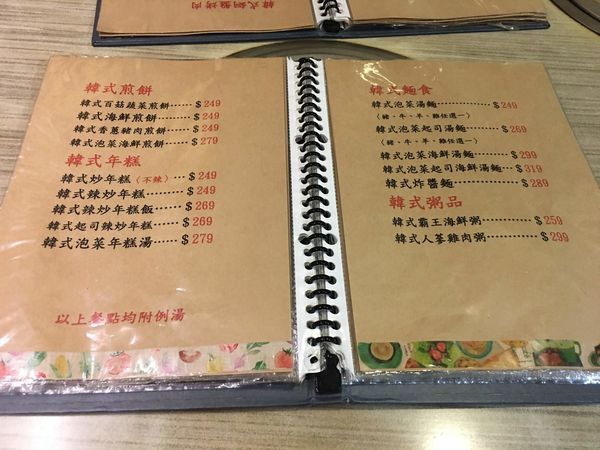 韓式銅盤烤肉
韓式煎餅
韓式百菇蔬菜煎餅……$249
韓式海鮮煎餅………$249
韓式香蔥豬肉煎餅……$249
韓式泡菜海鮮煎餅……$279
韓式年糕
韓式炒年糕(不辣)…$249
韓式辣炒年糕………$249
韓式辣炒年糕飯……$269
韓式起司辣炒年糕……$269
韓式泡菜年糕湯………$279
以上餐點均附例湯
韓式麵食
韓式泡菜湯麵………………$249
(豬、牛、羊、雞任選一)
韓式泡菜起司湯麵…………$269
(豬、牛、羊、雞任選一)
韓式泡菜海鮮湯麵…………$299
韓式泡菜起司海鮮湯麵……$319
韓式炸醬麵…………………$289
韓式粥品
韓式霸王海鮮粥…………$259
韓式人蔘雞肉粥…………$299